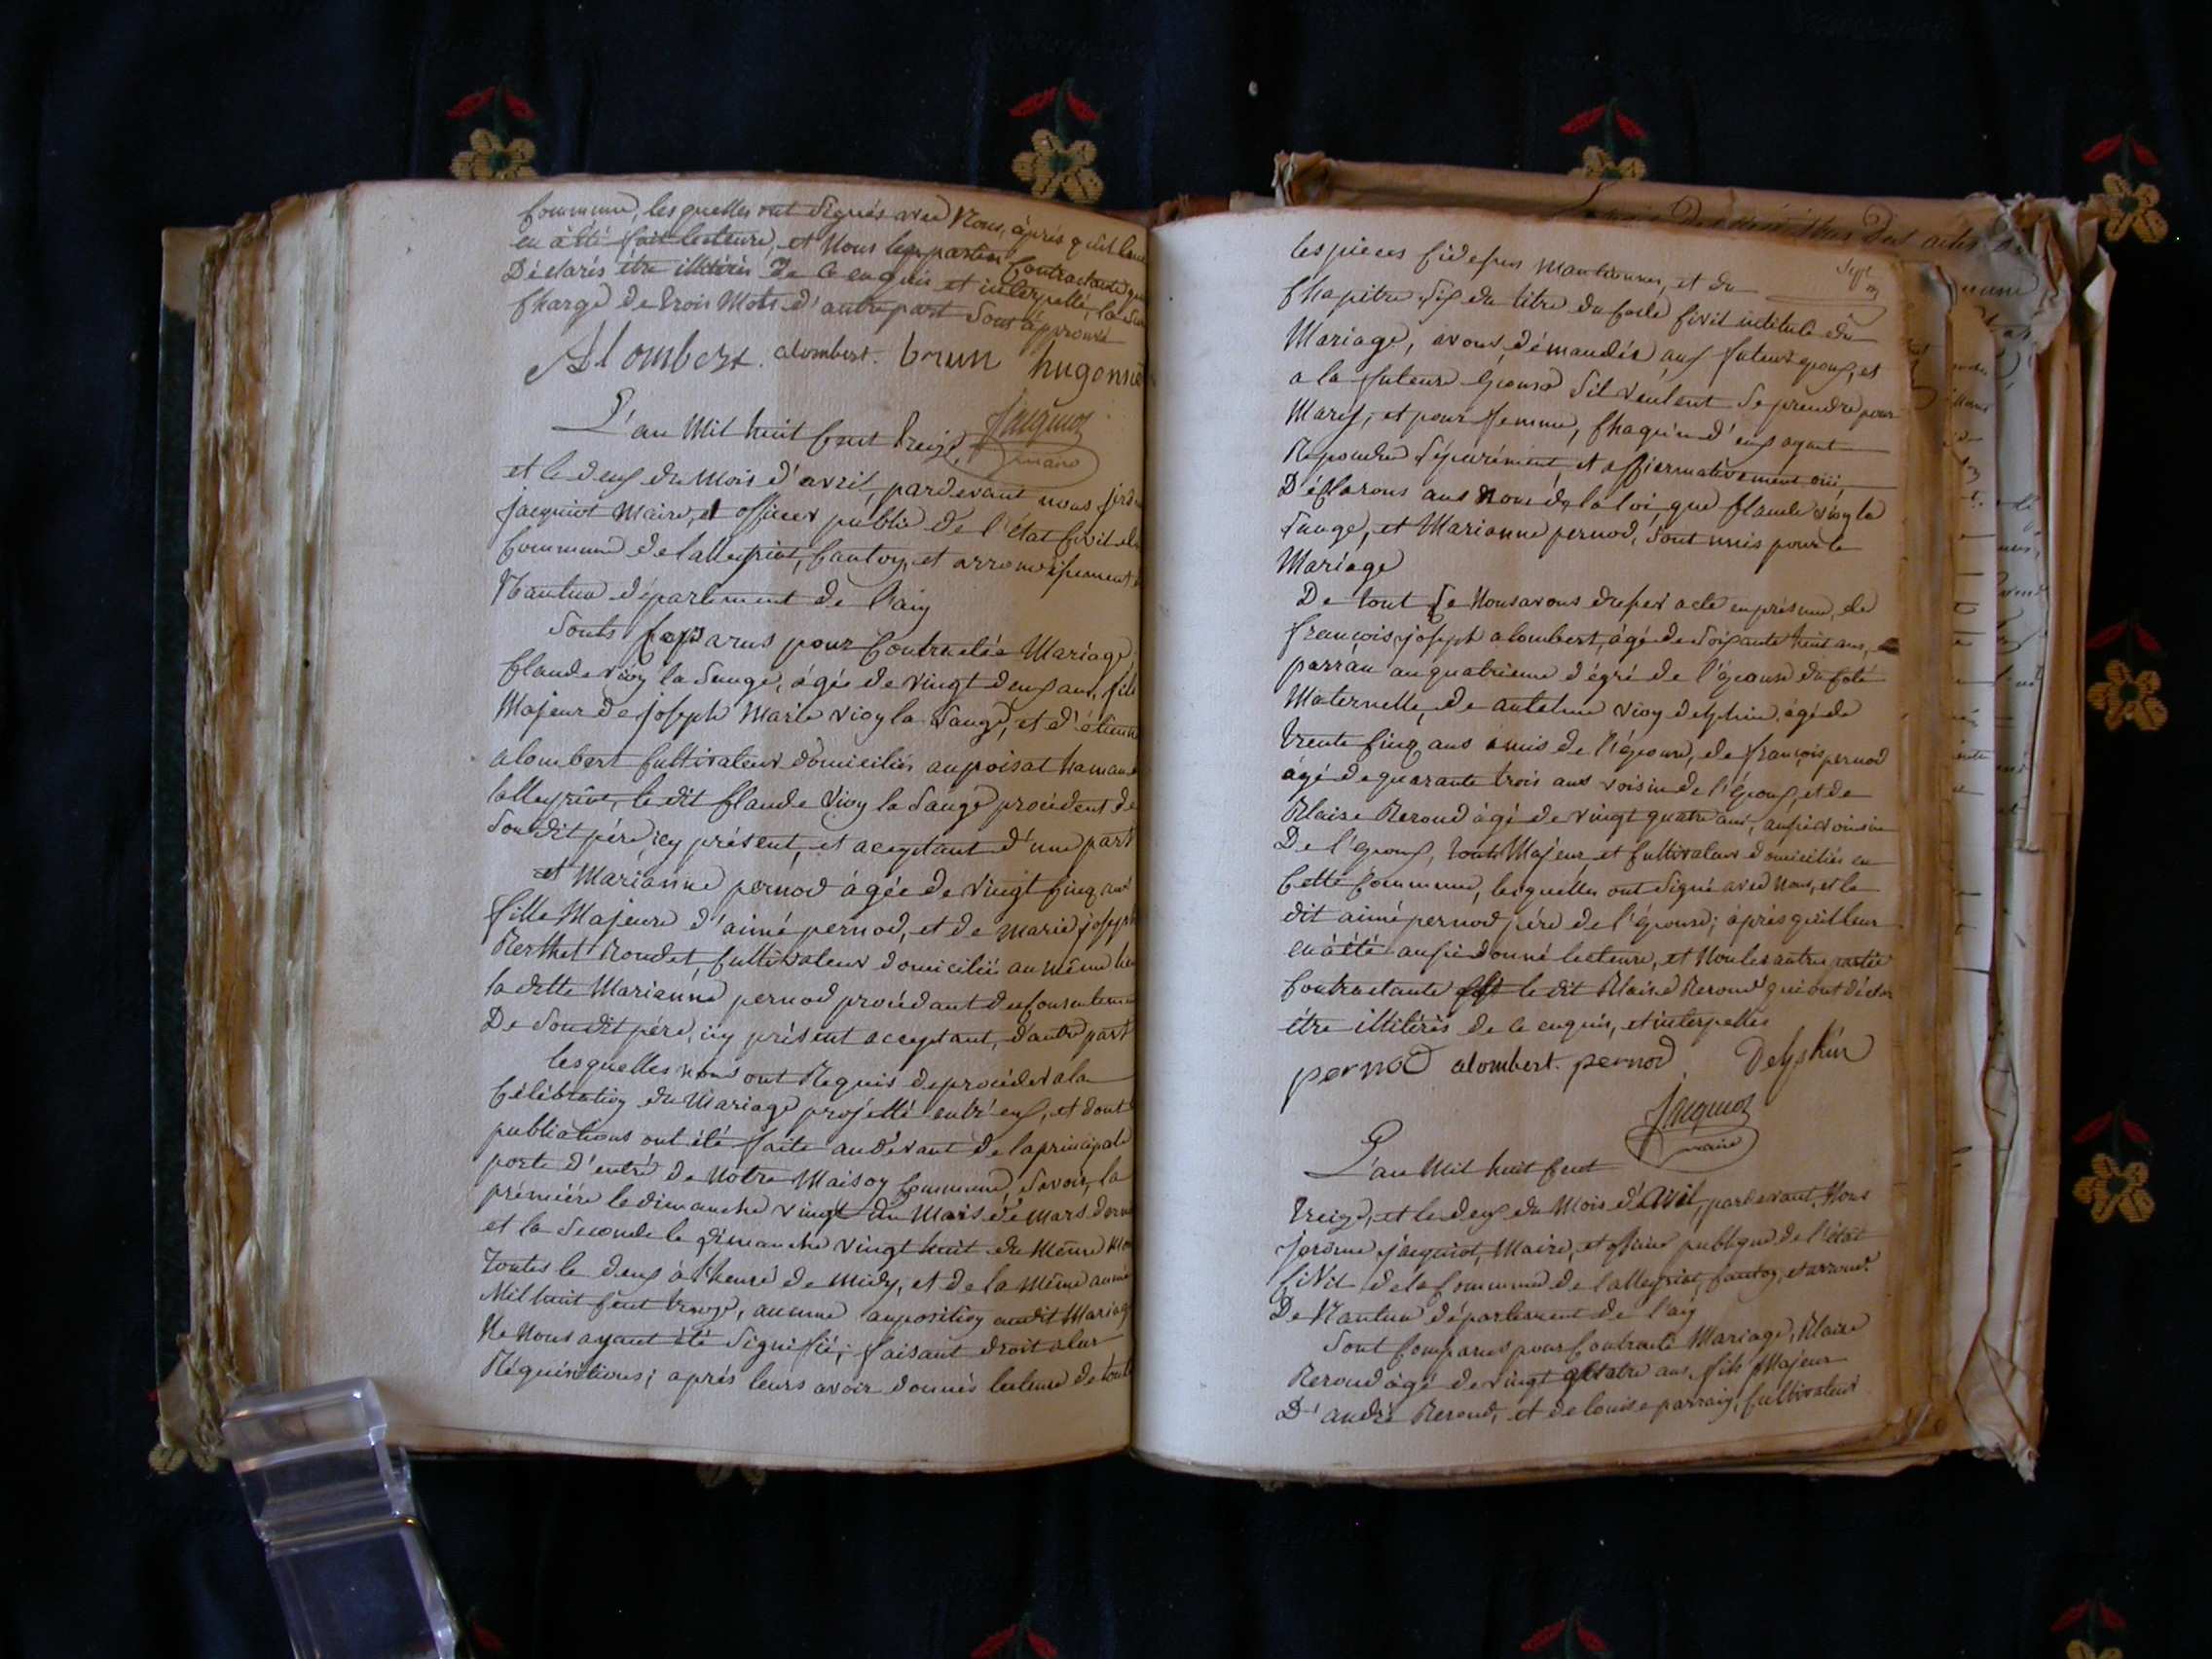 Commune, lesquelles ont signés avec Nous, après qu'il leur
en à été fait lecteure, et Nous les parties Contractante qui
Déclarés étre illitérés De ce enquis et interpellé, la sur
Charge de trois Mots d'autre part sont approuvé
Alombert. alombert. brun hugonnet
Jacquiot
maire
L'an Mil huit Cent treize,
et le deux du Mois d'avril, pardevant nous jérôme
jacquiot Maire, et officier public de l'état Civil de la
Commune de lalleyriat, Canton, et arrondissement de
Nantua département de l'ain
Sonts Comparus pour Contractée Mariage
Claude vioy la Sauge, âgée de vingt deux ans, fils
Majeur de joseph Marie vioy la Sauge, et d'étiennette
alombert Cultivateur domiciliés au poisat hameau de
lalleyriat, le dit Claude vioy la Sauge procédent de
Son dit pére icy présent, et aceptant d'une part
et Marianne pernod âgée de vingt Cinq ans
fille Majeure d'aimé pernod, et de Marie joseph
Berthet Rondet, Cultivateur domiciliés au même lieu
la ditte Marianne pernod procédant du Consentement
De Son dit pére, icy présent acceptant, d'autre part
lesquelles nous ont Requis de procéder a la
Célébration du Mariage projetté entr'eux, et dont
publications ont été faite au devant de la principale
porte d'entré de Notre Maison Commune, Savoir, la
premiére le dimanche vingt du Mois de Mars dernier
et la Seconde le dimanche vingt huit du Même Mois
toutes le deux à l'heure de midy, et de la Même année
Mil huit Cent treize, aucune aupposition audit Mariage
Ne Nous ayant été signifié; faisant droit a leur
Réquisitions; aprés leurs avoir donnés lecteure de toute
Sept
les pieces Cidessus Mantionnes, et du
Chapitre Six du titre du Code Civil intitulé du
Mariage, avons démandés aux futeur époux, et
a la future épouse S'il veulent Se prendre pour
Maris, et pour femme, Chaqu'un d'eux ayant
Répondu Séparément et affiermativement oüi
Déclarons aus Nom de la loi que Claude vioy la
Sauge, et Marianne pernod, Sont unis pour le
Mariage
De tout Ce Nous avons dressés acte en présence, de
françois joseph alombert, âgé de Soixante huit ans,
parran au quatrieme dégré de l'épouse du Coté
Maternelle, de antelme vioy delphin, âgé de
trente Cinq ans amis de l'épouse, de françois pernod
âgé de quarante trois ans voisin de l'époux, et de
Blaise Reroud âgé de vingt quatre ans, aussi voisin
De l'époux, touts Majeur, et Cultivateur domiciliés en
Cette Commune, lesquelles ont Signé avec Nous, et le
dit aimé pernod pére de l'épouse; àprés qu'il leur
en à été aussi donné lecteure, et Non les autres partie
Contractante le dit Blaise Reroud qui ont déclaré
étre illitérés de ce enquis, et interpellés
pernod alombert. pernod Delphin
Jacquiot
maire
L'an Mil huit Cent
treize, et le deux du Mois d'avril, pardevant Nous
jérôme jacquiot, Maire, et officier publique de l'état
CiVil de la Commune de lalleyriat, Canton, et arrond.t
De Nantua département de l'ain
Sont Comparus pour Contracté Mariage, Blaise
Reroud âgé de vingt quatre ans, fils Majeur
D'andré Reroud, et de louise parrain, Cultivateur